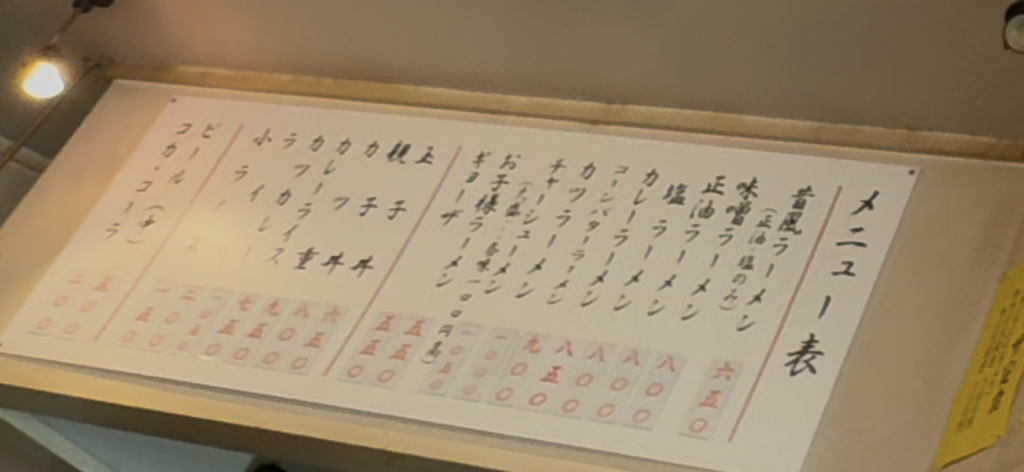 メニュー表
昔風ラーメン 六五〇
(正油・塩のみ)
味噌ラーメン 八〇〇
正油ラーメン 八〇〇
塩ラーメン 八〇〇
カレーラーメン 八五〇
コーンバターラーメン 九〇〇
カツラーメン 一〇〇〇
チャーシューメン 一〇五〇
(大盛・各味一〇〇円高)
お子様ラーメン 五五〇
ギョーザ 五五〇
玉子丼 六〇〇
親子丼 八〇〇
カツ丼 九〇〇
カツ重
カレーライス 七五〇
カツカレー 一〇〇〇
ライス 二〇〇
小ライス 一五〇
ビール(中) 五〇〇
コカ・コーラ 二〇〇